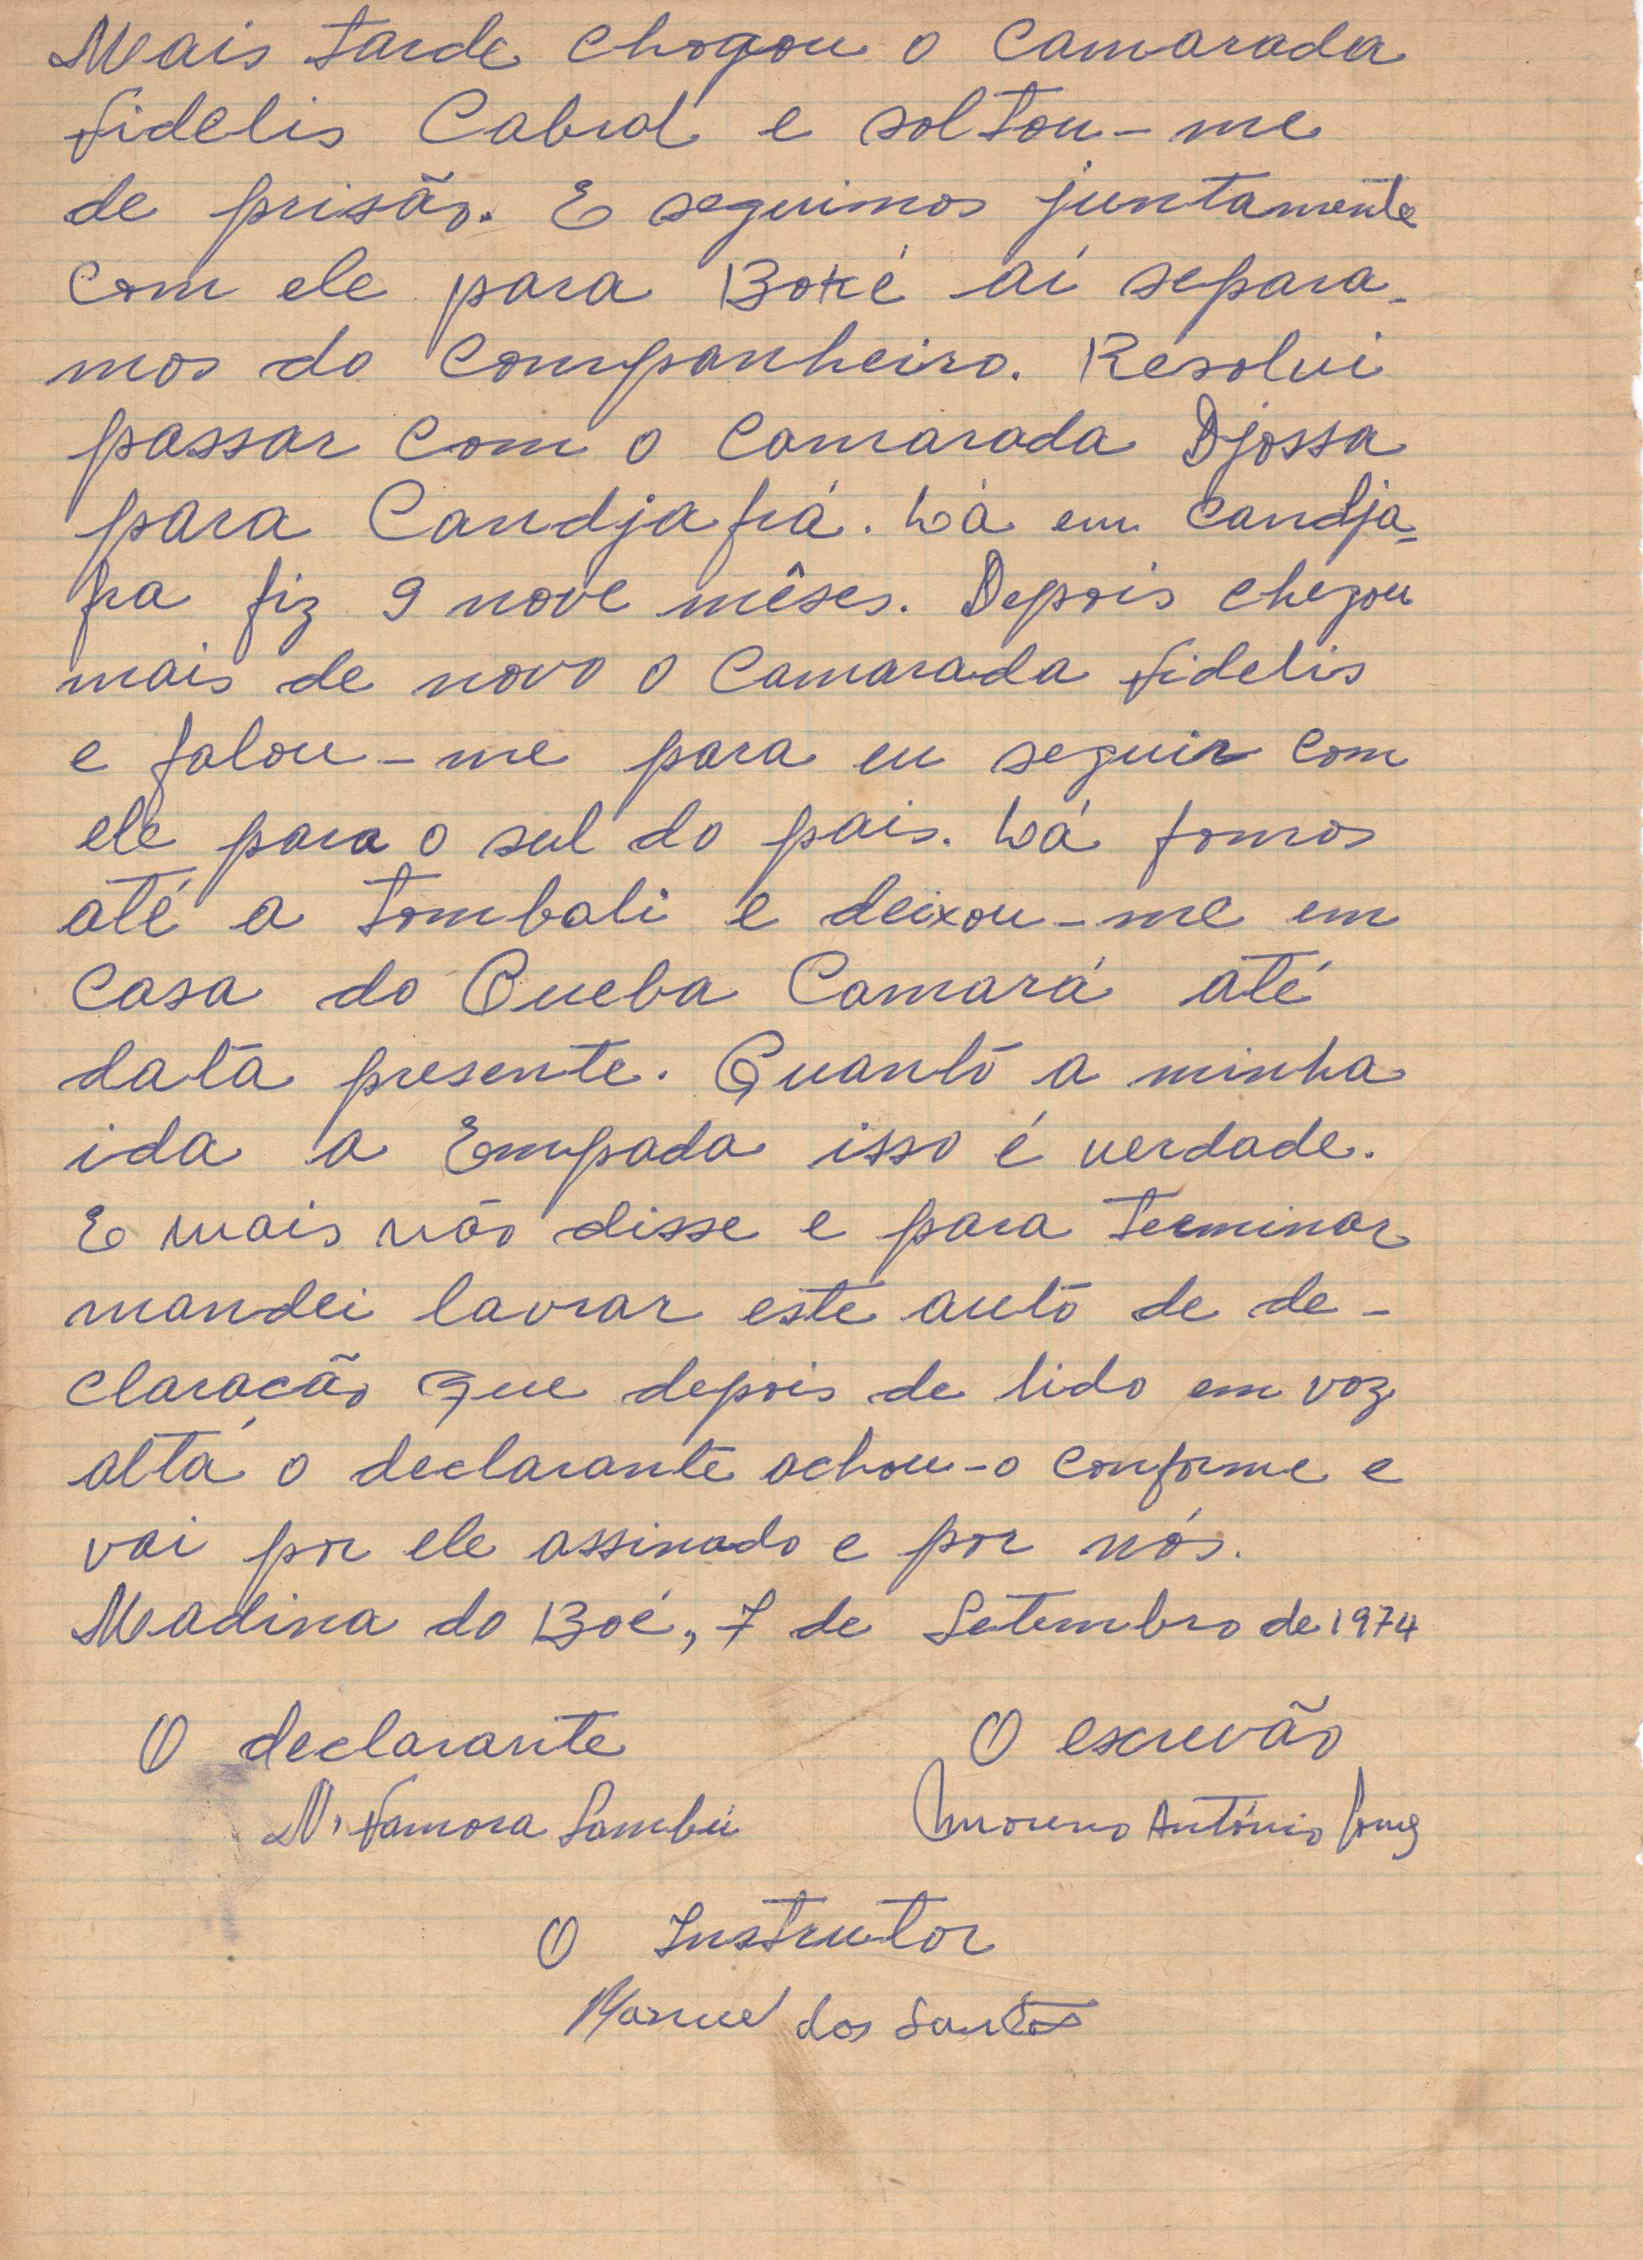 Mais tarde chegou o camarada
fidelis Cabral e soltou-me
de prisão. E seguimos juntamente
com ele para Boké aí separa-
mos do companheiro. Resolvi
passar com o camarada Djassa
para Candjafrá. Lá em Candja-
fra fiz 9 nove mêses. Depois chegou
mais de novo o Camarada fidelis
e falou-me para eu seguir com
ele para o sul do pais. Lá fomos
até a Tombali e deixou-me em
casa do Queba Camará até
data presente. Quanto a minha
ida a Empada isso é verdade.
E mais não disse e para terminar
mandei lavrar este auto de de-
claracão que depois de lido em voz
alta o declarante achou-o conforme e
vai por ele assinado e por nós.
Madina do Boé, 7 de Setembro de 1974
O declarante O escrevão
N'famora Sambú António
O Instrutor
Manuel dos Santos